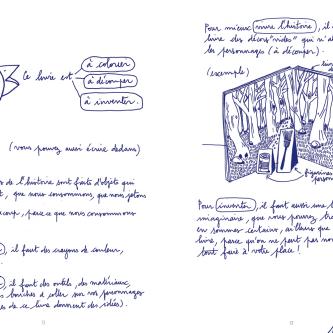 Ce livre est
à colorier
à découper
à inventer.
(vous pouvez aussi écrire dedans)
de l'histoire sont faits d'objets qui
que nous consommons, que nous jetons
parce que nous consommons
il faut des crayons de couleur,
il faut des outils, des matériaux,
à coller sur vos personnages
de ce livre donnent des idées).
Pour mieux vivre l'histoire, il
livre des décors "vides" qui n'at
les personnages (à découper).
(exemple)
figurines
perso
Pour inventer, il faut aussi une
imaginaire, que vous pouvez
en sommes certains, ailleurs que
livre, parce qu'on ne peut pas
tout faire à votre place !